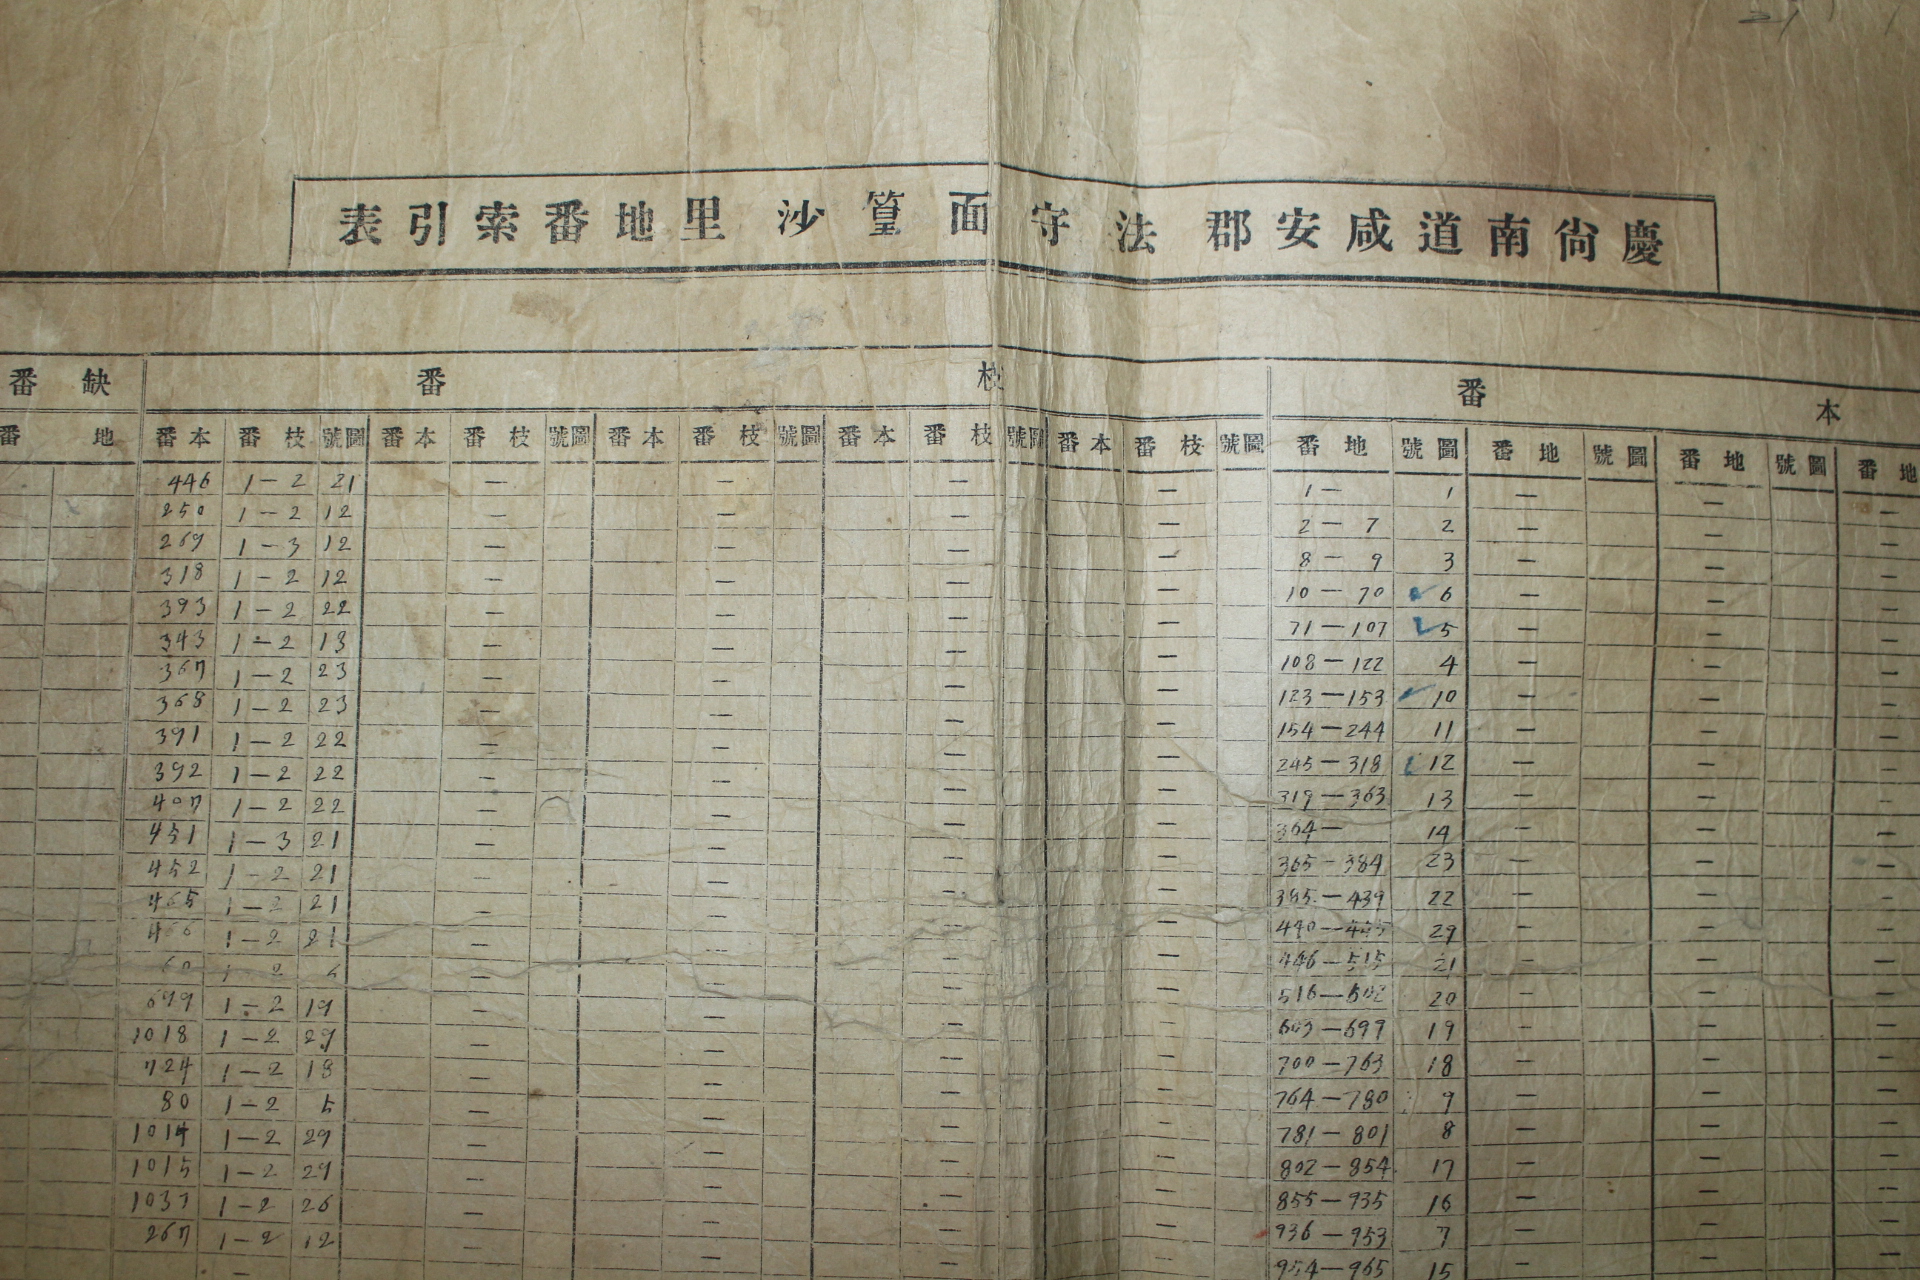 慶尙南道咸安郡法守面篁沙里地番索引表
本番
枝番
缺番
地番 圖號 地番 圖號 地番 圖號 地番
本番 枝番 圖號 本番 枝番 圖號 本番 枝番 圖號 本番 枝番 圖號 本番 枝番 圖號
地番
1— 1
2—7 2
8—9 3
10—70 6
71—107 5
108—122 4
123—153 10
154—244 11
245—318 12
319—363 13
364— 14
365—384 23
385—439 22
440—445 29
446—515 21
516—602 20
603—699 19
700—763 18
764—780 9
781—801 8
802—854 17
855—935 16
936—953 7
954—965 15
446 1—2 21
250 1—2 12
269 1—3 12
318 1—2 12
393 1—2 22
343 1—2 13
367 1—2 23
368 1—2 23
391 1—2 22
392 1—2 22
407 1—2 22
451 1—3 21
452 1—2 21
465 1—2 21
466 1—2 21
60 1—2 6
699 1—2 19
1018 1—2 29
724 1—2 18
80 1—2 5
1014 1—2 29
1015 1—2 29
1037 1—2 26
267 1—2 12